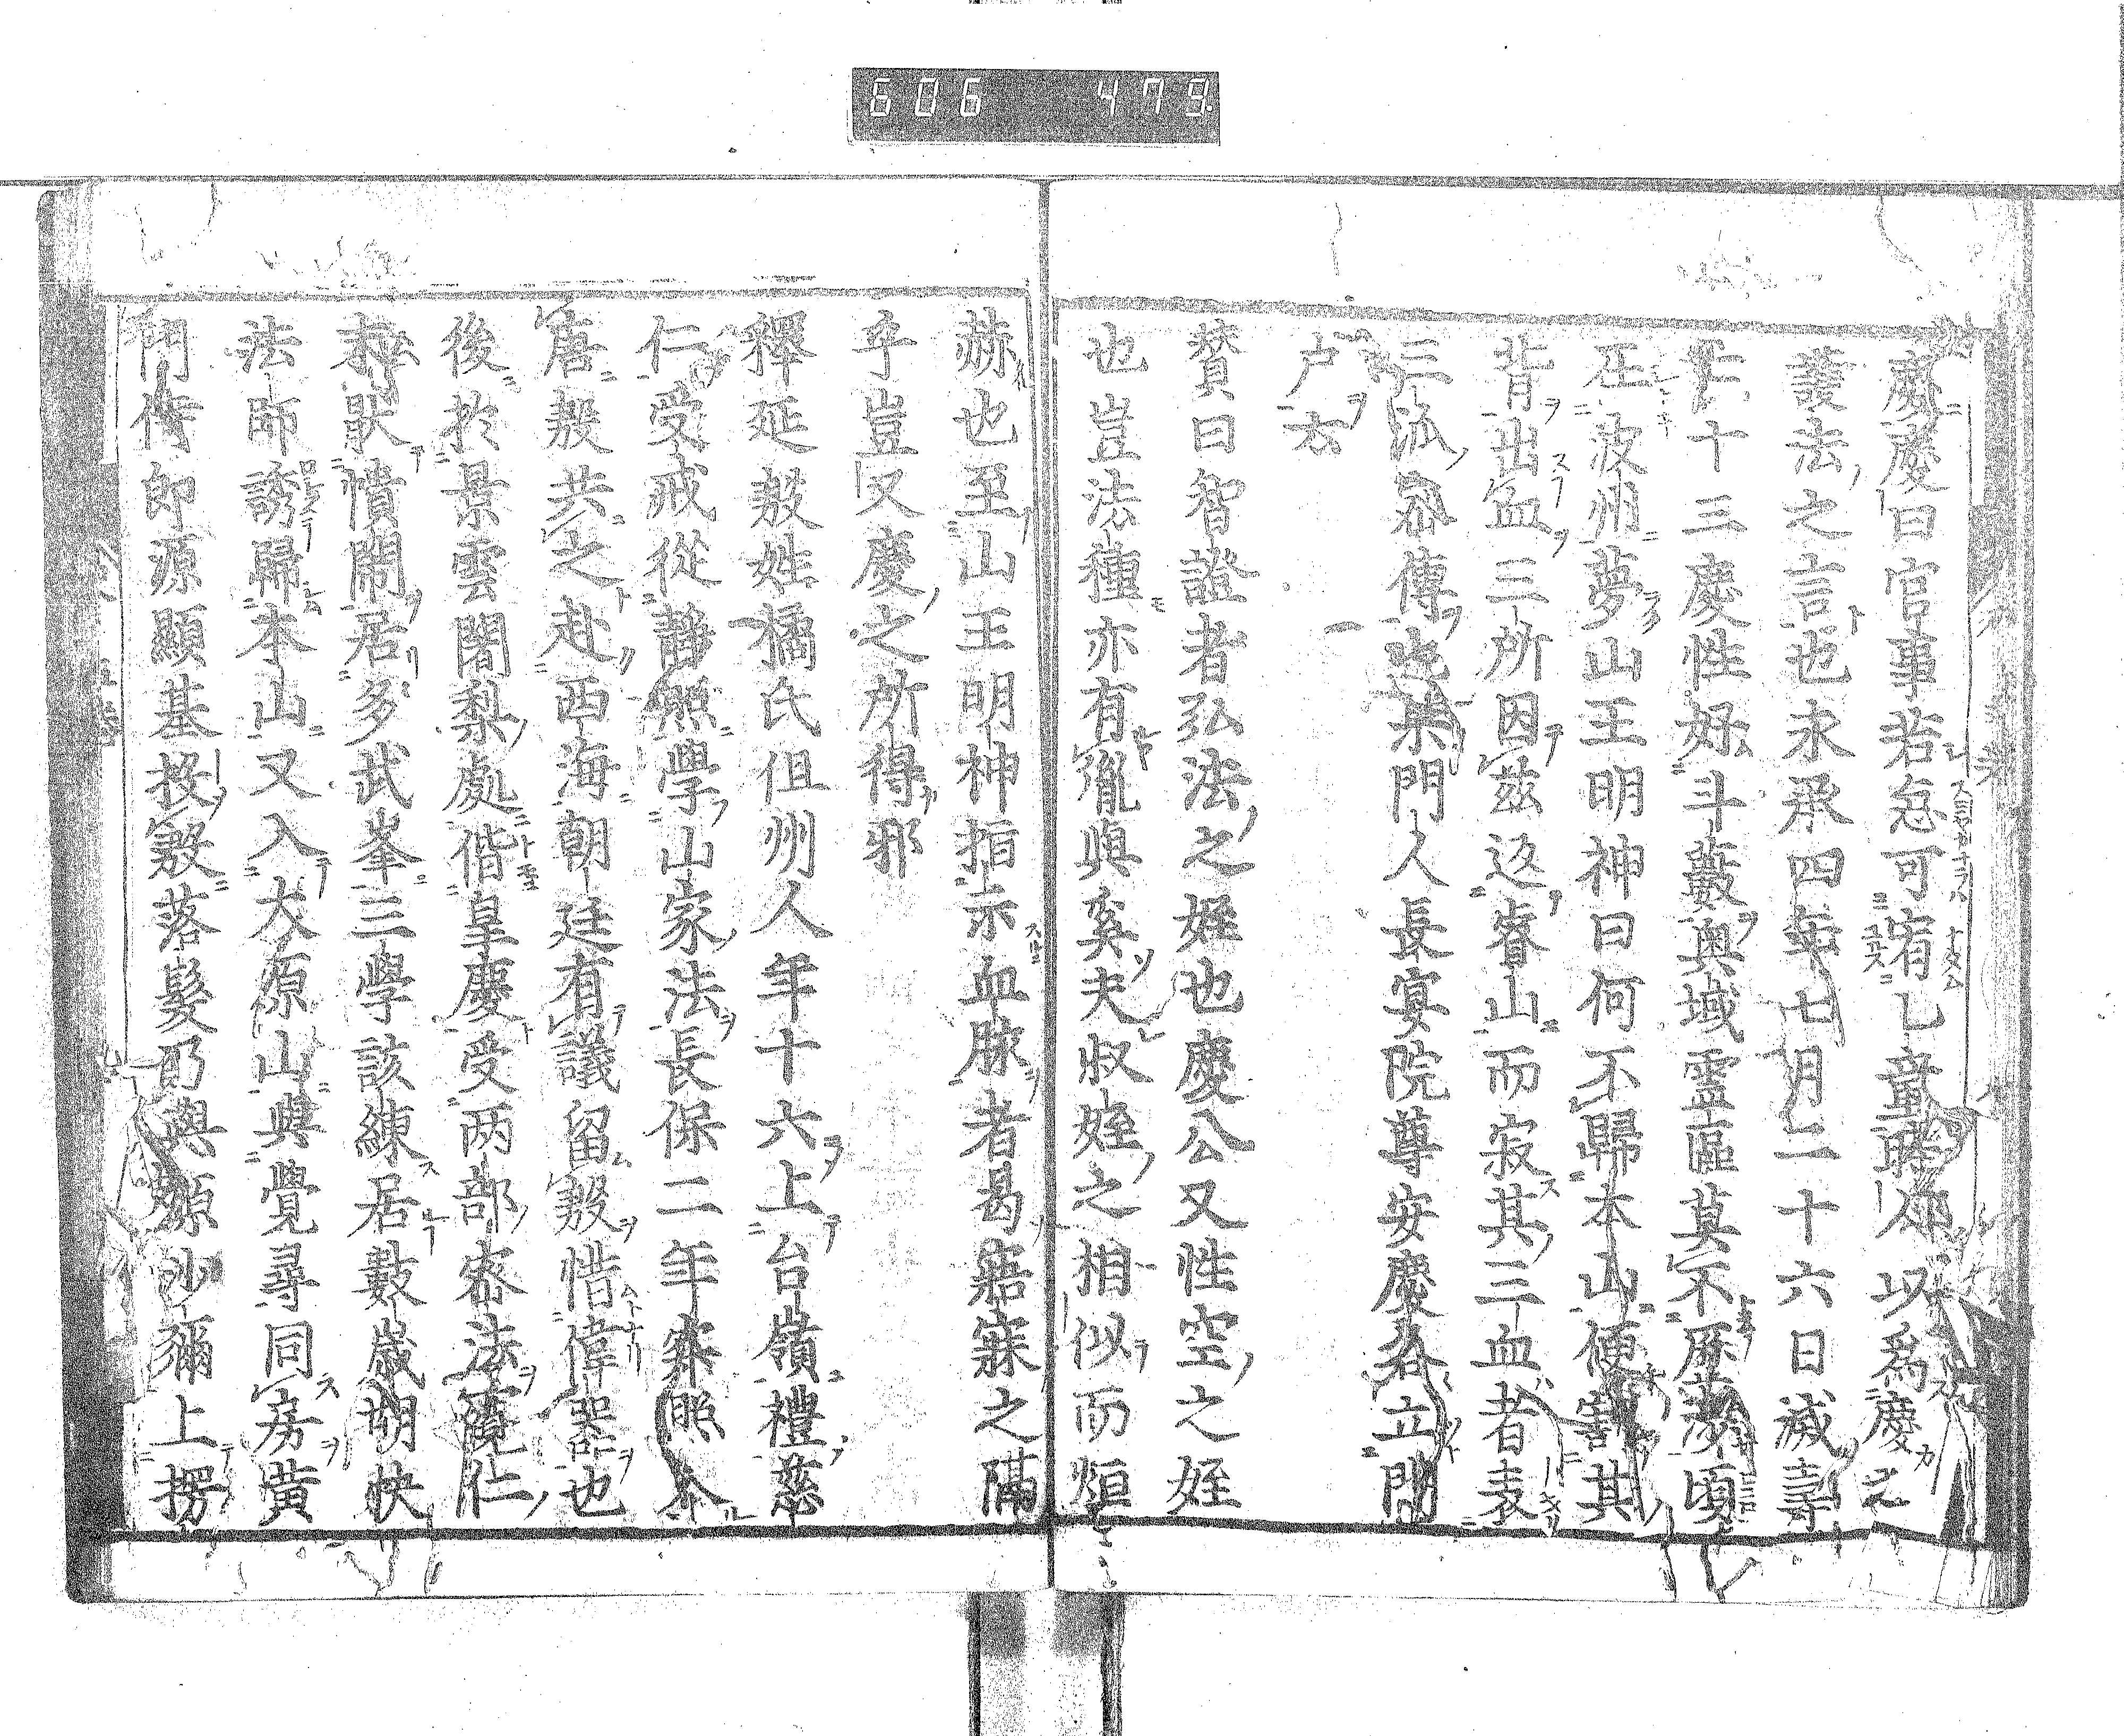 606 479
慶慶曰官事若怠可宥乙童 以爲慶之
護法之言也永承四年七月二十六日滅壽
七十三慶性好斗藪奥域靈區莫不歷渉頃
在波州夢山王明神曰何不歸本山便割其
背出血三所因茲返睿山而寂其三血者表
三派密傳 門人長宴院尊安慶各立門
戸云
賛曰智證者弘法之姪也慶公又性空之姪
也豈法種亦有胤與奚夫叔姪之相似而烜
赫也至山王明神指示血脉者曷寤寐之隔
乎豈又慶之所得邪
釋延殷姓橘氏但州人年十六上台嶺禮慈
仁受戒從靜照學山家法長保二年寂照入
唐殷共之赴西海朝廷有議留殷惜偉器也
後於景雲闍梨處偕皇慶受两部密法 仁
 厭憒閙居多武峯三學該練居數歳明快
法師誘歸本山又入大原山與覺尋同房黄
門侍郎源顯基投殷落髮乃與源沙彌上楞